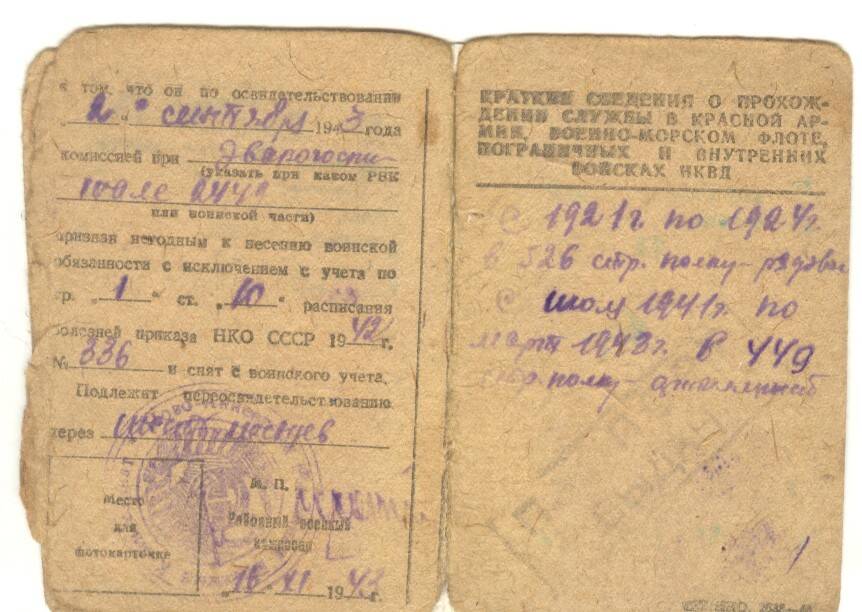 в том, что он по освидетельствовании
"2" сентября 1943 года
комиссией при Эвакогоспи-
(указать при каком РВК
тале
или воинской части)
признан негодным к несению воинской
обязанности с исключением с учета по
гр. "1" ст. "10" расписания
болезней приказа НКО СССР 1942 г.
№ 336 и снят с воинского учета.
Подлежит переосвидетельствованию
через шесть месяцев
Место
для
фотокарточки
М. П.
Районный военный
комиссар
"16" XI 1943 г.
КРАТКИЕ СВЕДЕНИЯ О ПРОХОЖ-
ДЕНИИ СЛУЖБЫ В КРАСНОЙ АР-
МИИ, ВОЕННО-МОРСКОМ ФЛОТЕ,
ПОГРАНИЧНЫХ И ВНУТРЕННИХ
ВОЙСКАХ НКВД
С 1921г. по 1924г.
в 526 стр. полку - рядовой
С июля 1941г. по
март 1943г. в 449
стр. полку -